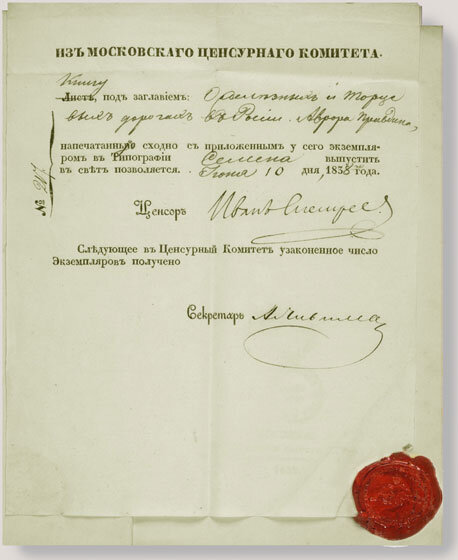 ИЗЪ МОСКОВСКАГО ЦЕНСУРНАГО КОМИТЕТА.
Книгу
Листъ, подъ заглавіемъ: О желѣзныхъ и торце
выхъ дорогахъ въ Россіи. Аврора Правдина,
напечатанную сходно съ приложеннымъ у сего экземпля-
ромъ въ Типографіи Семена выпустить
въ свѣтъ позволяется. Іюня 10 дня, 1838 года.
№ 217
Ценсоръ Иванъ Снегирев.
Слѣдующее въ Ценсурный Комитетъ узаконенное число
Экземпляровъ получено
Секретарь